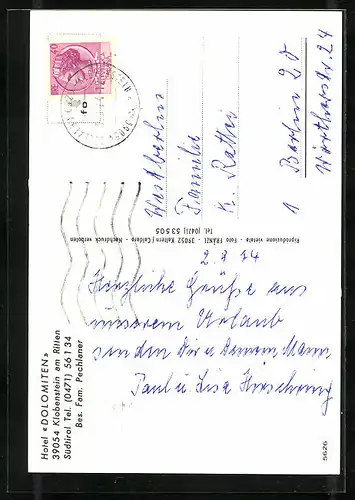 Hotel «DOLOMITEN»
39054 Klobenstein am Ritten
Südtirol Tel. (0471) 56 1 34
Bes. Fam. Pechlener
2. 8. 74
Herzliche Grüße aus
unserem Urlaub
senden Dir u Deinem Mann
Paul u. Lisa
Riproduzione vietata - Foto FRÄNZL - 39052 Kaltern / Caldaro - Nachdruck verboten
Tel. (0471) 53 5 05
Westberlin
Familie
K.
1 Berlin 20
24
5626